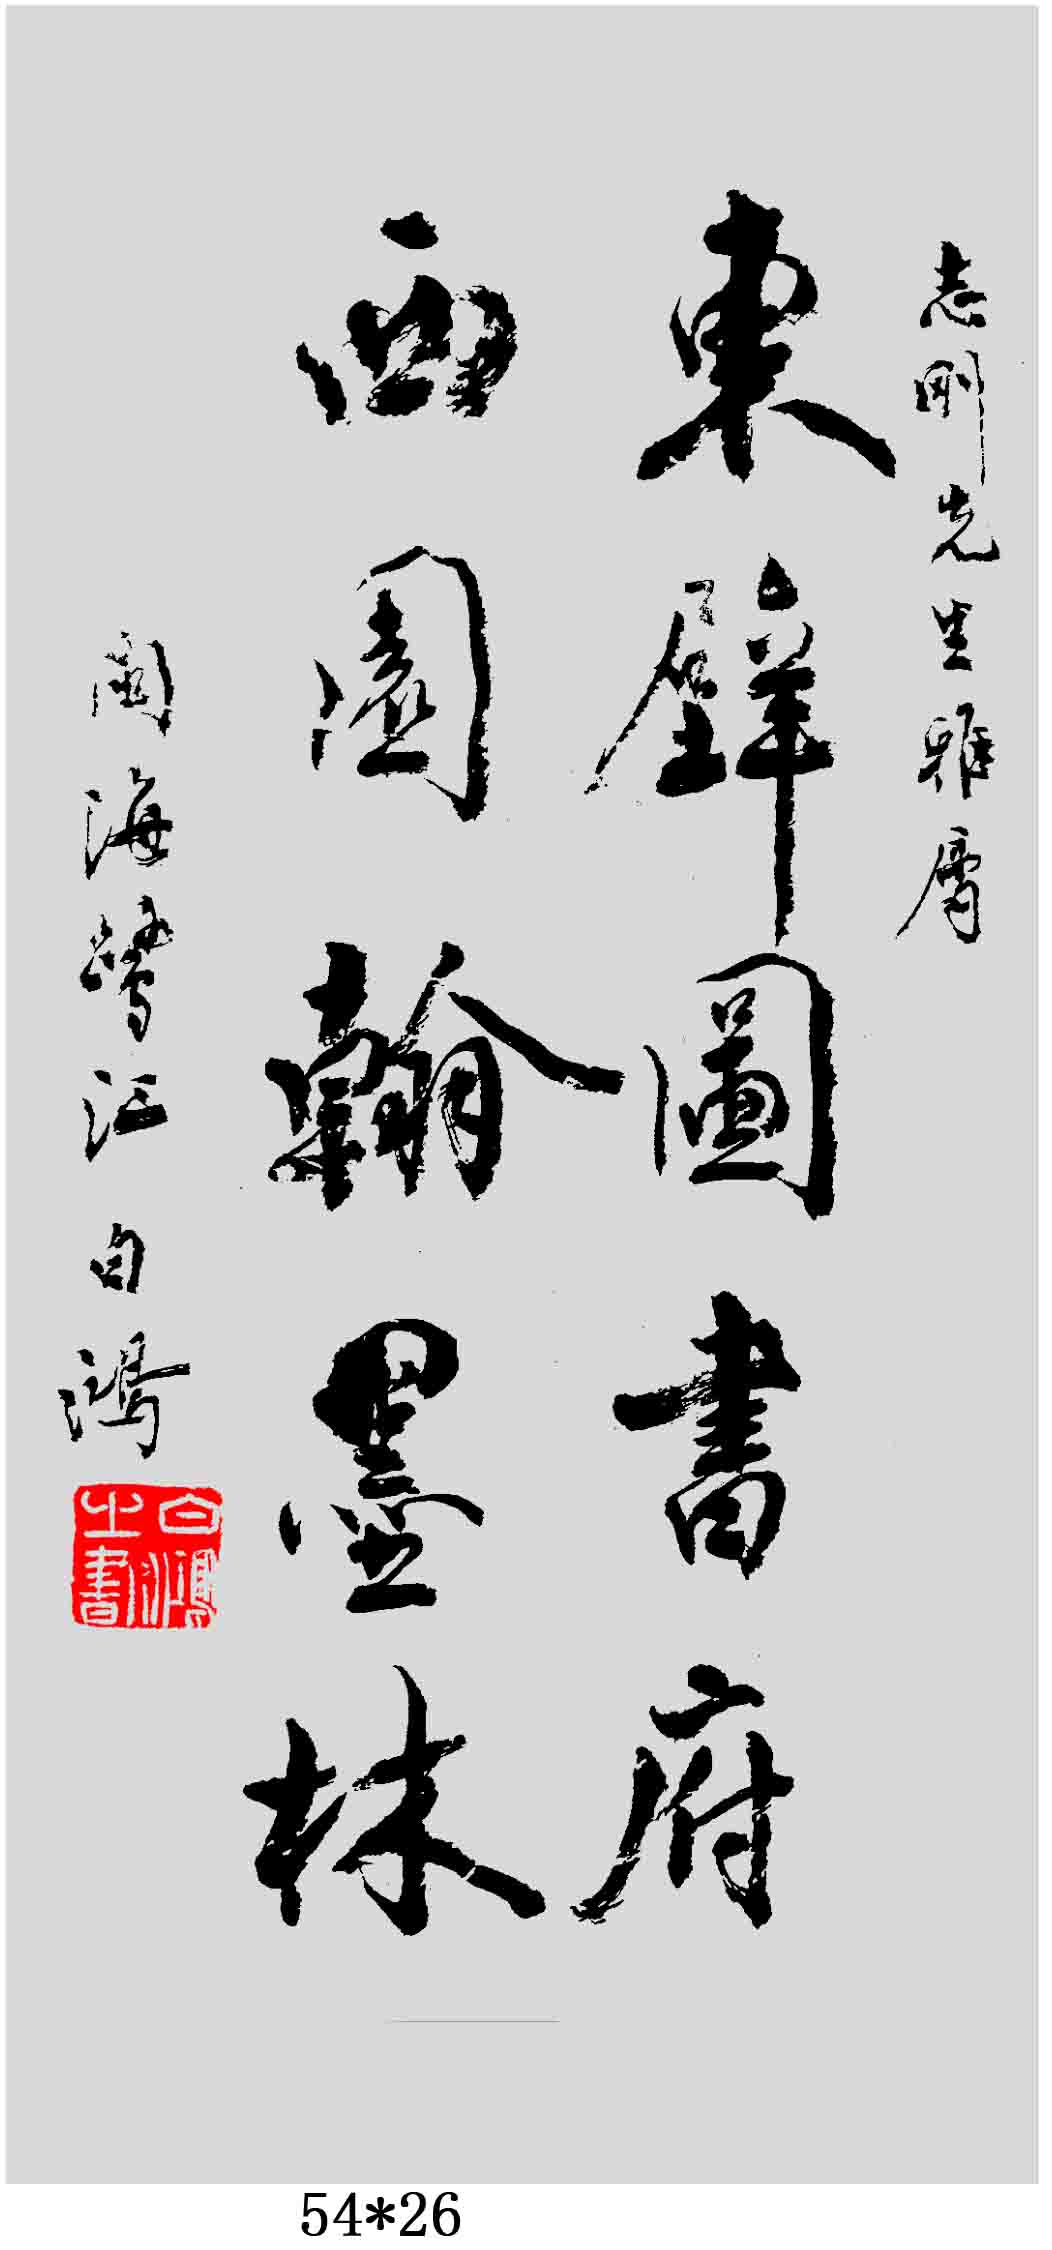 志剛先生雅屬
東壁圖書府
西園翰墨林
閩海鷺江白鴻
白鴻之書
54*26